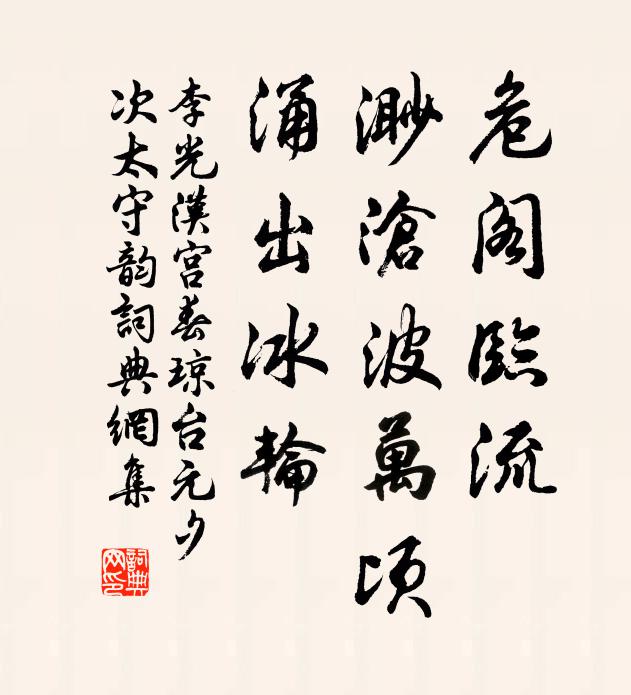 危阁臨流
渺滄波萬頃
涌出冰輪
李光漢宮春琼台元夕
次太守韵詞典網集
詞典网印